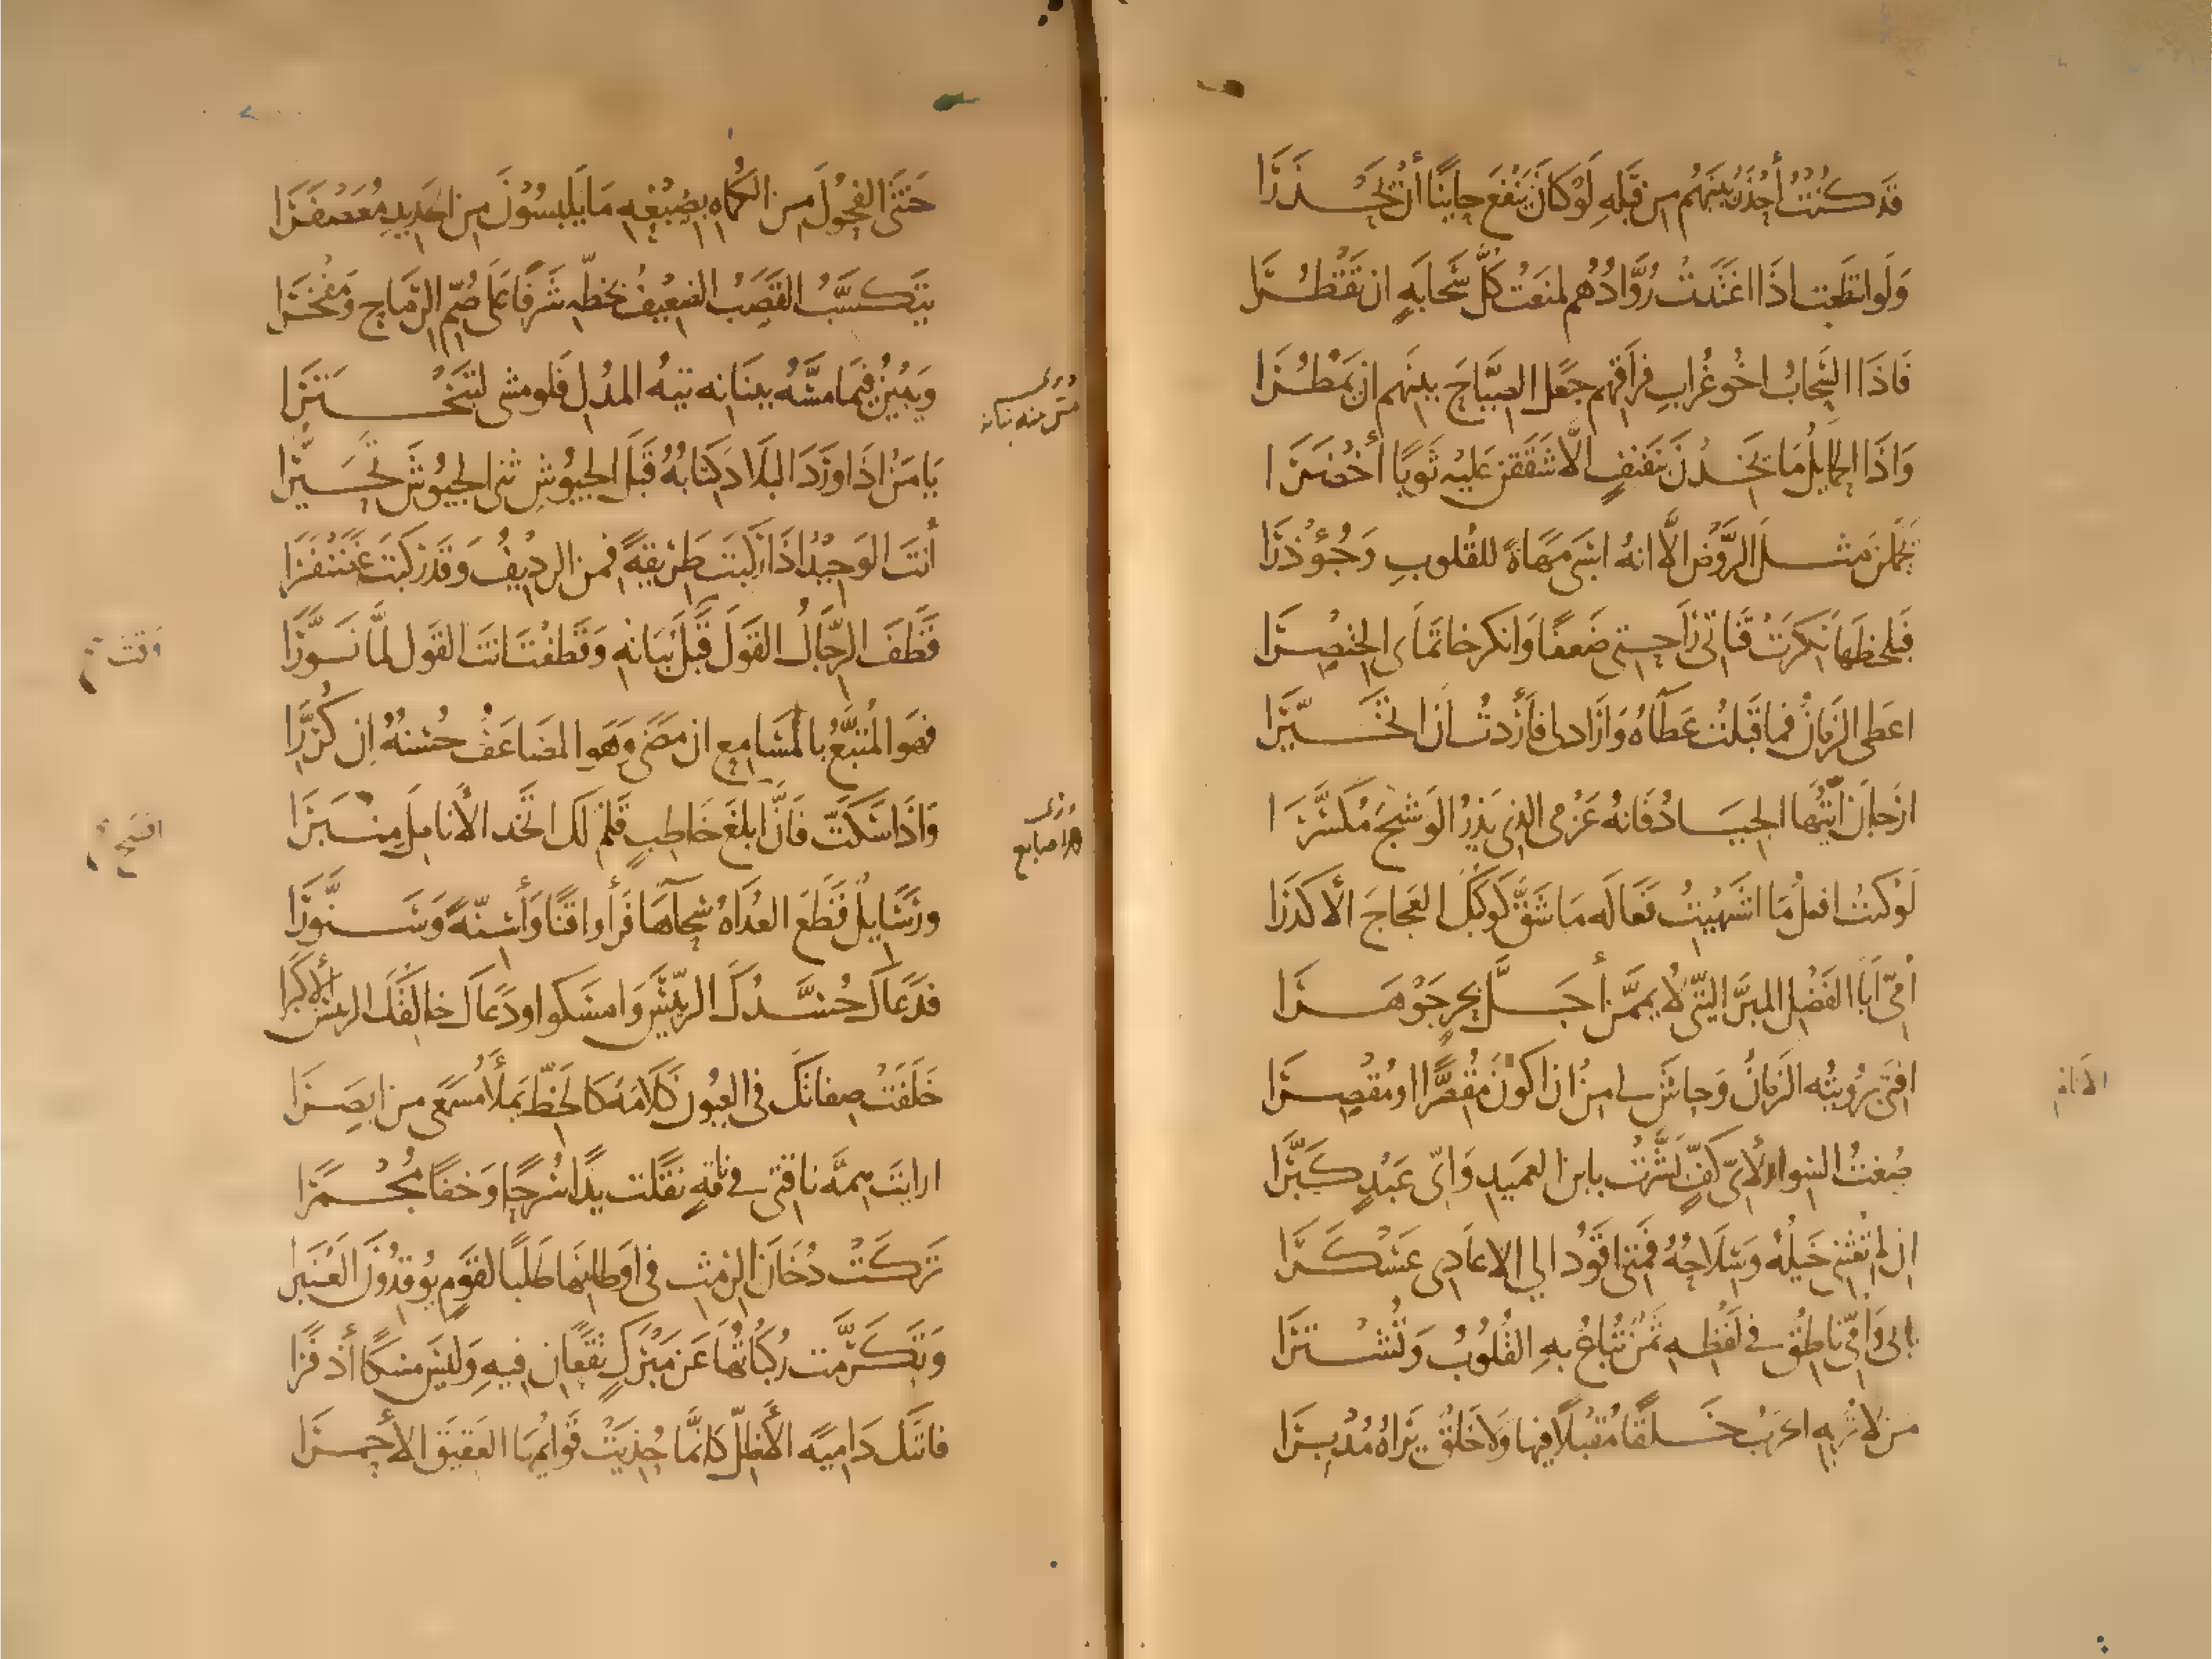 قَد كُنتُ أحذَرُ بَينَهُم مِن قَبلِهِ لَو كانَ يَنفَعُ حايِنًا أن يَحذَرَا
وَلَو استطَعت اذَا اغتَدَت رُوَّادُهُم لمنَعتُ كُلَّ سَحابَةٍ ان تَقطُرَا
فَاذَا السَّحابُ اخُو غُرابِ فِراقِهم جَعَلَ الصِيَاحَ ببينهم ان يَمطُرَا
وَاذَا الحمايلُ مَا يَخِدنَ بنَفنَفٍ الَّا شَقَقنَ عَليه ثَوبًا أخضَرَا
يَحمِلنَ مثلَ الرَّوض الَّا انهُ اسبَى مَهَاةً للقُلوبِ وَجُؤذُرَا
فَبِلحظِهَا نَكِرَت قَنَاتِى رَاحَتِى ضَعفًا وَانكر خاتمَاىَ الخِنصِرَا
اعطى الزَمانُ فما قَبلتُ عَطَآهُ وَارَاد لى فأَرَدتُ أن اتخَيَّرَا
ارَجانَ ايَّتُهَا الجِيَادُ فَانهُ عَزمى الذى يَذرُ الوَشيجَ مُكَسَّرَا
لَو كنتُ افعلُ مَا اشتَهيتِ فَعَالَه مَا شَقَّ كَوكَبُكِ العَجاجَ الأكدَرَا
أُمِّى أبَا الفَضلِ المبرَّ اليَّتى لأُيمِّمَنَّ أجَلَّ بحرٍ جَوهَرَا
افتَى برُويتِه الزَمانُ وَحاشَ لى مِن ان اكونَ مُقصِّرًا او مُقصِرَا
صُغتُ السِوارَ لأىِّ كَفٍّ بَشَّرَت بابن العَميدِ وَاىِّ عَبدٍ كَبَّرَا
ان لم تُغثنى خَيلُهُ وَسِلَاحُهُ فمَتى اقُودُ الي الاعَادِى عَسكَرَا
بابى وَامِّى ناطِقٌ فى لَفظِهِ ثَمَنٌ تُبَاعُ بهِ القُلُوبُ وَتُشتَرَا
من لا تُرِيهِ الحَربُ خَلقًا مُقبِلًا فيها وَلا خَلقٌ يَراهُ مُدبِرَا
الانام
خَنثَى الفحُولَ مِن الكُماه بِصَبغِهِ مَا يَلبَسُونَ مِنَ الحَديدِ مُعَصفَرَا
يَتَكَسَّبُ القَصَبُ الضعِيفُ بخَطِّهِ شَرَفًا عَلَى صُمِّ الرِّمَاحِ وَمَفخَرَا
وَيَبينُ فِيمَا مَسَّهُ ببَنَانِه تيهُ المدُلِ فَلو مشى لتَبَختَرَا
يَا مَن اذَا وَرَدَ البلَادَ كتَابُهُ قَبلَ الجيُوشِ ثنى الجيُوشَ تحَيُّرَا
أنتَ الوَحِيدُ اذَا ركَبتَ طَريقَةً فمن الرديفُ وَقَد رَكبتَ غَضَنفَرَا
قَطَفَ الرِّجَالُ القَولَ قَبلَ نَبَاتِهِ وَقَطَفتَ انتَ القَول لمَّا نَوَّرَا
فهوَ المُتَبَّعُ بالمَسَامِعِ ان مَضَى وَهَو المضَاعَفُ حُسنُهُ إن كُرِّرَا
وَاذَا سَكَتَّ فَانَّ ابلغَ خَاطِبٍ قَلَمٌ لَكَ اتَّخذ الأنامِلَ مِنبَرَا
ورَسَايِلٌ قَطَعَ العُدَاةُ سِحاءَهَا فَرَأَوا قَنًا وَأَسِنّةً وَسَنَوَّرَا
فدَعَاكَ حُسَّدُكَ الرئيسَ وَامسَكوا ودَعَاكَ خالقُكَ الرئيسَ الأكبَرَا
خَلَفَت صِفاتُكَ فى العُيونِ كَلَامَهُ كالخَطِّ يَملَأُ مسمَعَى من ابصَرَا
ارايتَ هِمَّه ناقتى فى ناقةٍ نقَلت يَدًا سُرُحًا وَخفًا مُجمَرَا
تَرَكَت دُخَانَ الرِمثِ فى اوطانها طَلَبًا لقَومٍ يُوقِدُونَ العَنبَرَا
وَتَكَرَّمت رُكَباتُها عَن مَبرَكٍ تَقَعَانِ فِيهِ وَليسَ مسكًا أذفَرَا
فاتتكَ دَامِيَه الأظلِّ كانَّمَا حُذِيَت قَوايُمهَا العَقيقَ الأحمرَا
وَقتَ